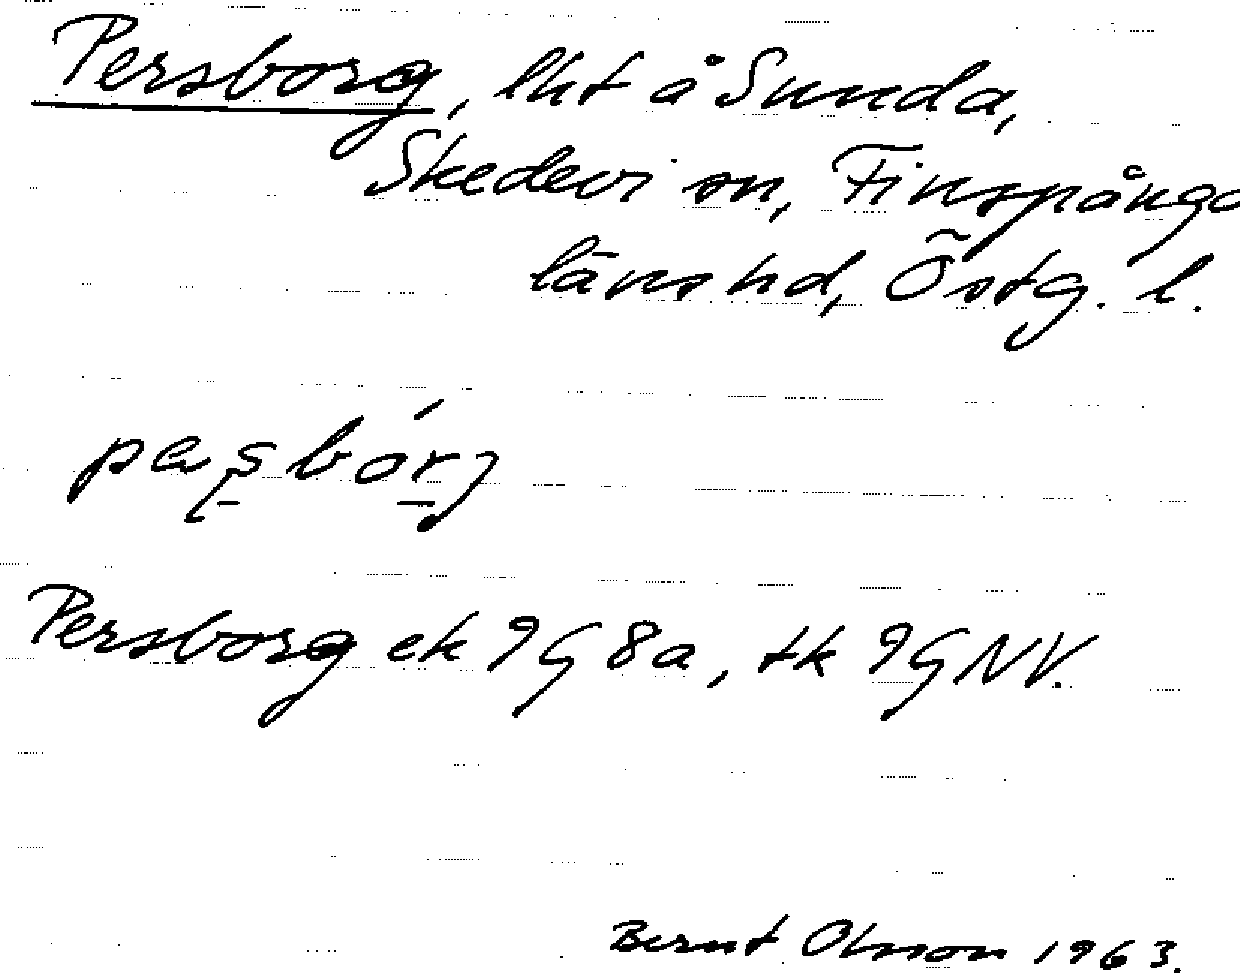 Persborg, lht å Sunda,
Skedevi sn, Finspånga
länshd, Östg. l.
pæʂbórj
Persborg ek 9G8a, tk 9GNV.
Bernt Olsson 1963.